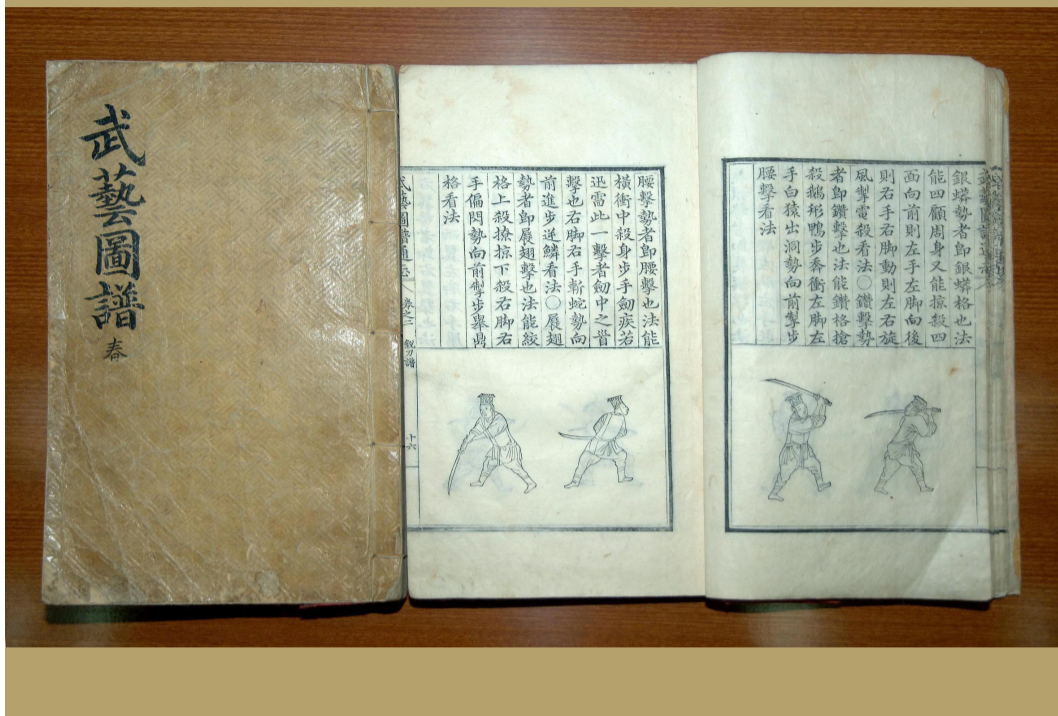 武藝圖譜
春
銀蟒勢者卽銀蟒格也法
能四顧周身又能掠殺四
面向前則左手左脚向後
則右手右脚動則左右旋
風掣電殺看法○鑽擊勢
者卽鑽擊也法能鑽格搶
殺鵝形鴨步奔衝左脚左
手白猿出洞勢向前掣步
腰擊看法
腰擊勢者卽腰擊也法能
橫衝中殺身步手劒疾若
迅雷此一擊者劒中之首
擊也右脚右手斬蛇勢向
前進步逆鱗看法○展翅
勢者卽展翅擊也法能絞
格上殺撩掠下殺右脚右
手偏閃勢向前掣步擧鼎
格看法
武藝圖譜通志 卷之二 銳刀譜 十六